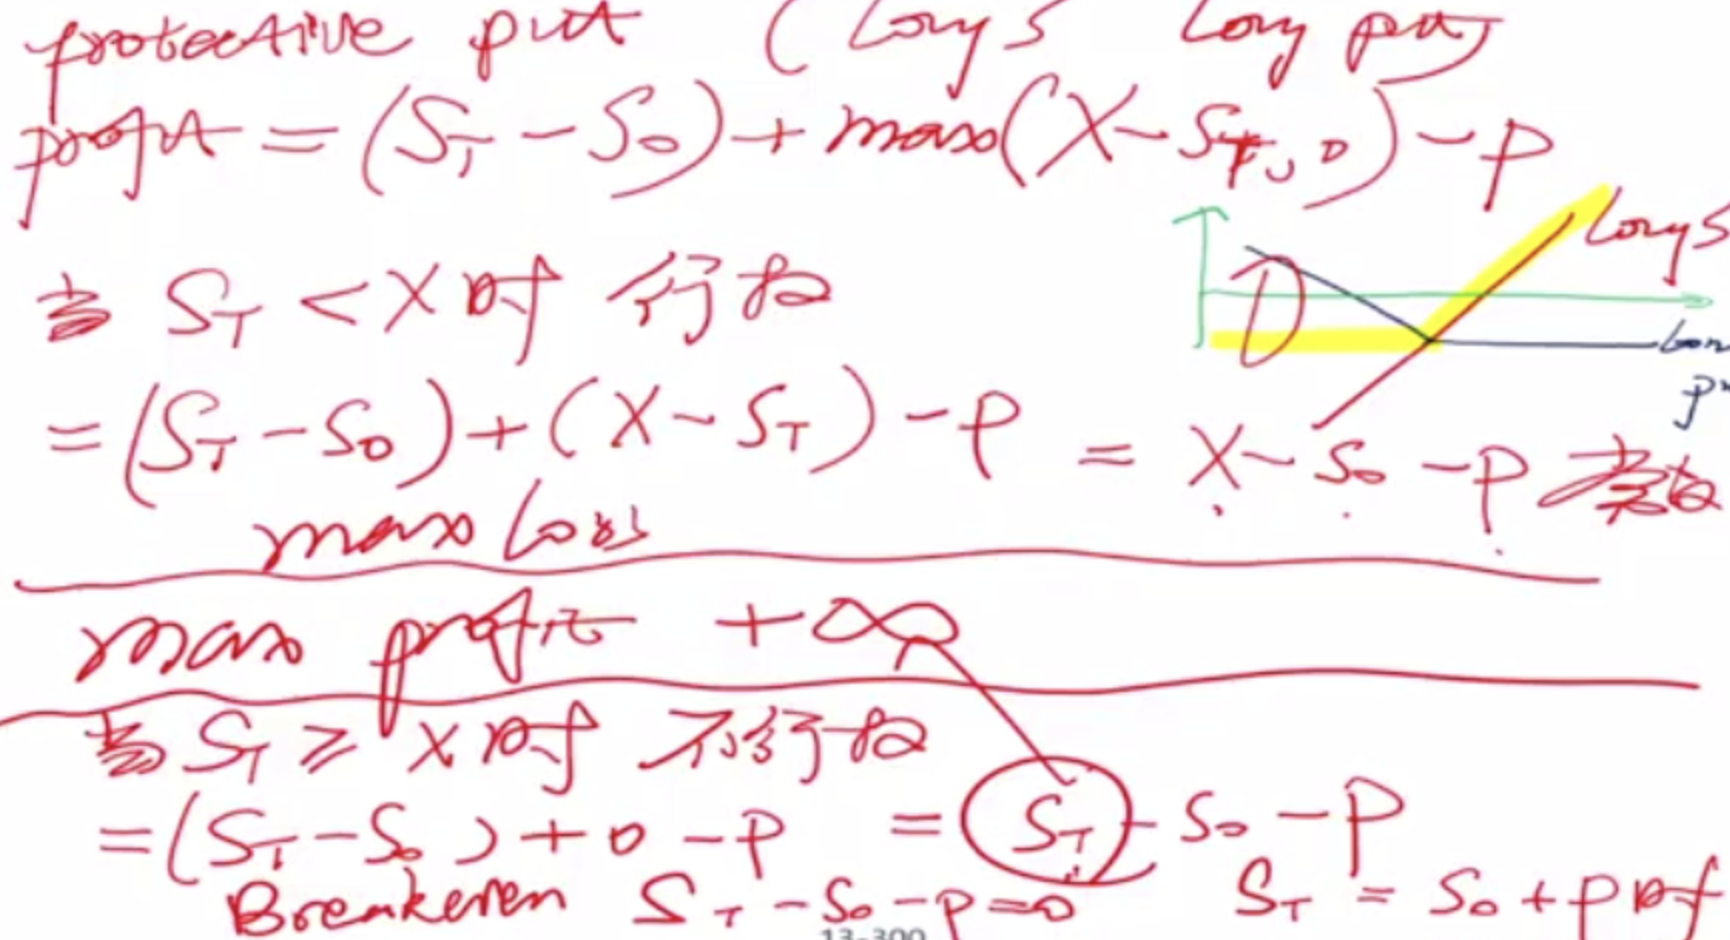 protective put (Long S Long put)
profit = (S_T - S_0) + max(X - S_T, 0) - p
Long S
当 S_T < X 时 行权
Lon
p
= (S_T - S_0) + (X - S_T) - p = X - S_0 - p 常数
max loss
max profit +∞
当 S_T ≥ X 时 不行权
= (S_T - S_0) + 0 - p = S_T - S_0 - p
Breakeven S_T - S_0 - p = 0 S_T = S_0 + p 时
13-300